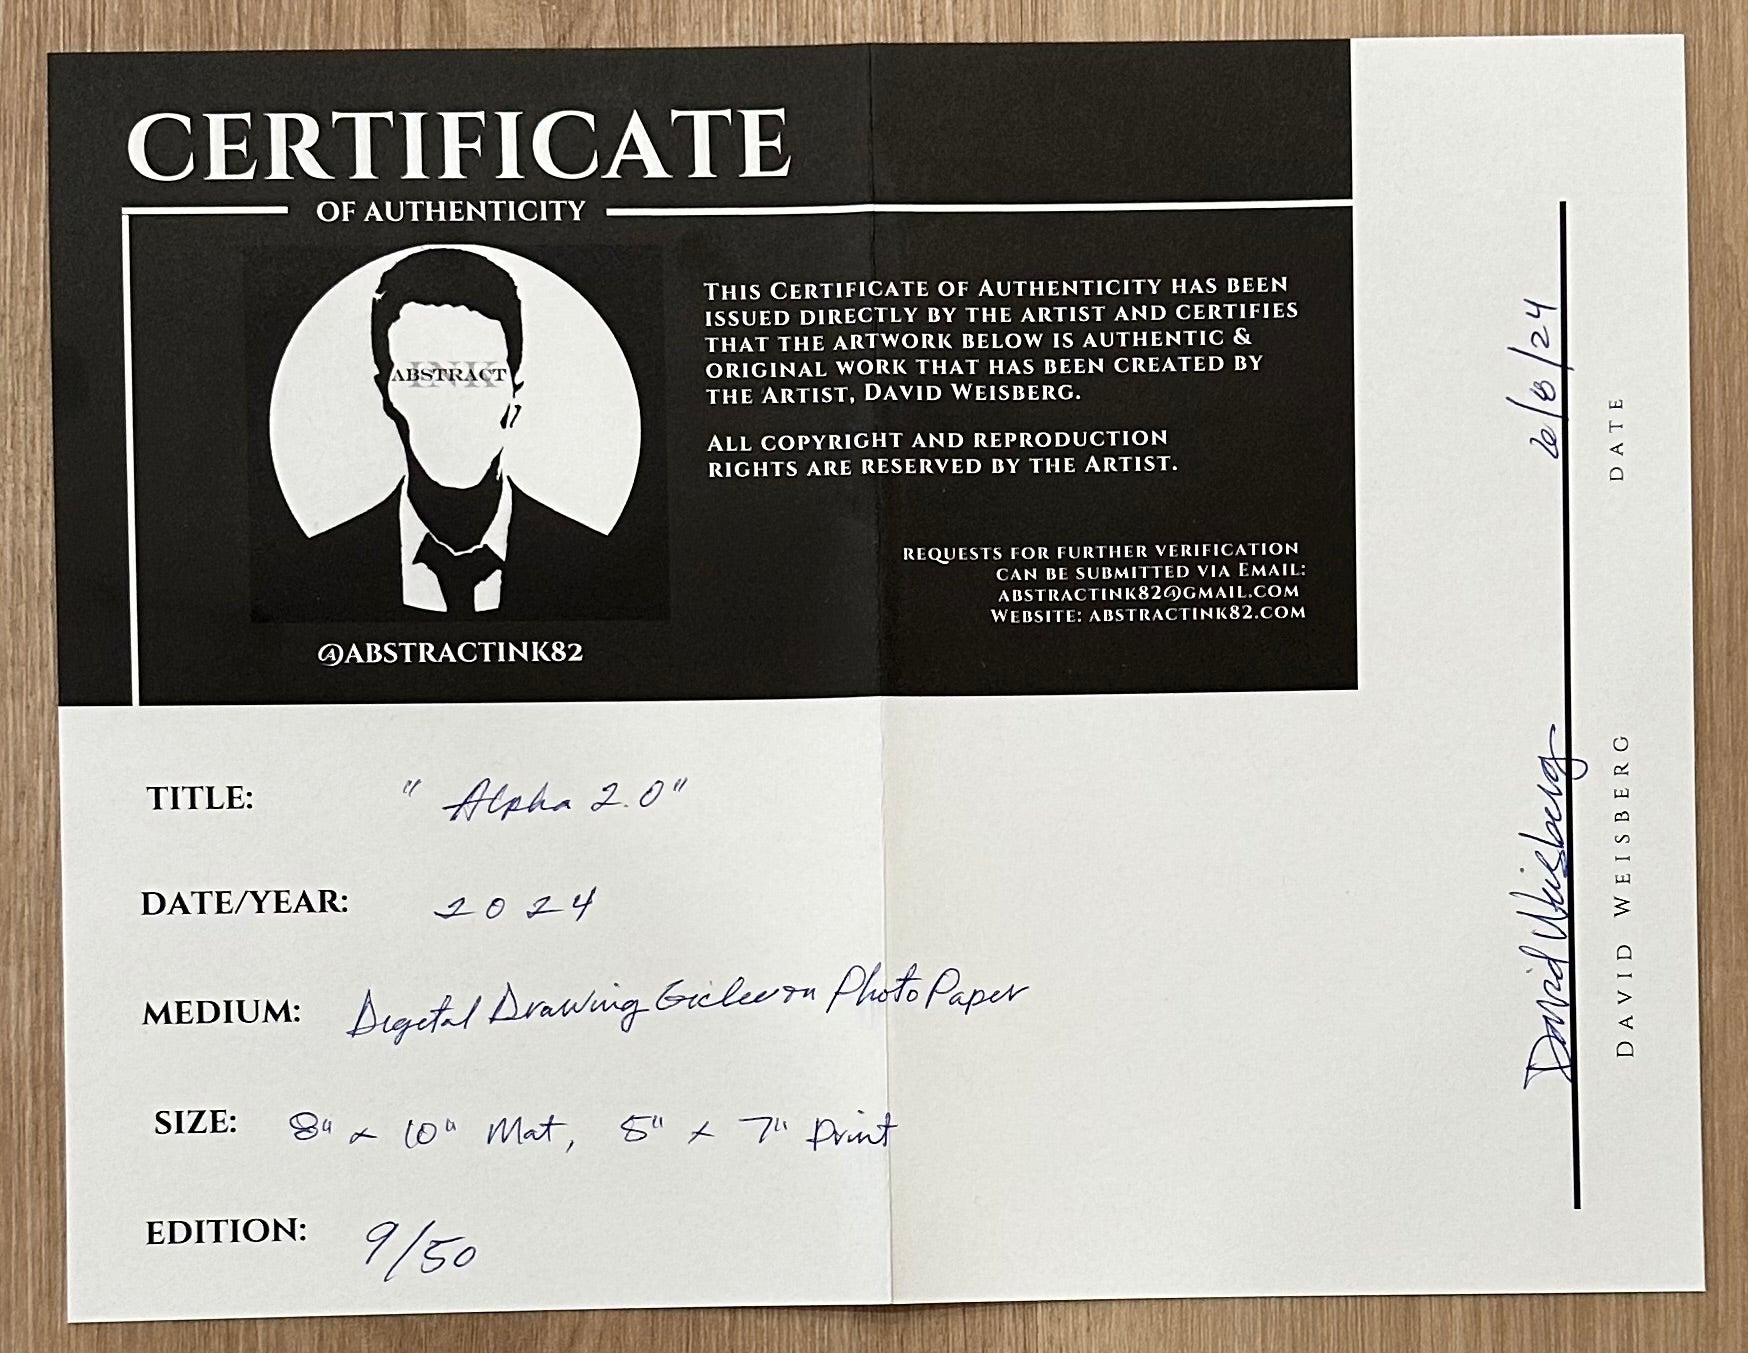 CERTIFICATE
OF AUTHENTICITY
INK
ABSTRACT
@ABSTRACTINK82
THIS CERTIFICATE OF AUTHENTICITY HAS BEEN
ISSUED DIRECTLY BY THE ARTIST AND CERTIFIES
THAT THE ARTWORK BELOW IS AUTHENTIC &
ORIGINAL WORK THAT HAS BEEN CREATED BY
THE ARTIST, DAVID WEISBERG.
ALL COPYRIGHT AND REPRODUCTION
RIGHTS ARE RESERVED BY THE ARTIST.
REQUESTS FOR FURTHER VERIFICATION
CAN BE SUBMITTED VIA EMAIL:
ABSTRACTINK82@GMAIL.COM
WEBSITE: ABSTRACTINK82.COM
TITLE: "Alpha 2.0"
DATE/YEAR: 2024
MEDIUM: Digital Drawing Giclee on Photo Paper
SIZE: 8" x 10" Mat, 5" x 7" Print
EDITION: 9/50
David Weisberg 6/8/24
DAVID WEISBERG DATE